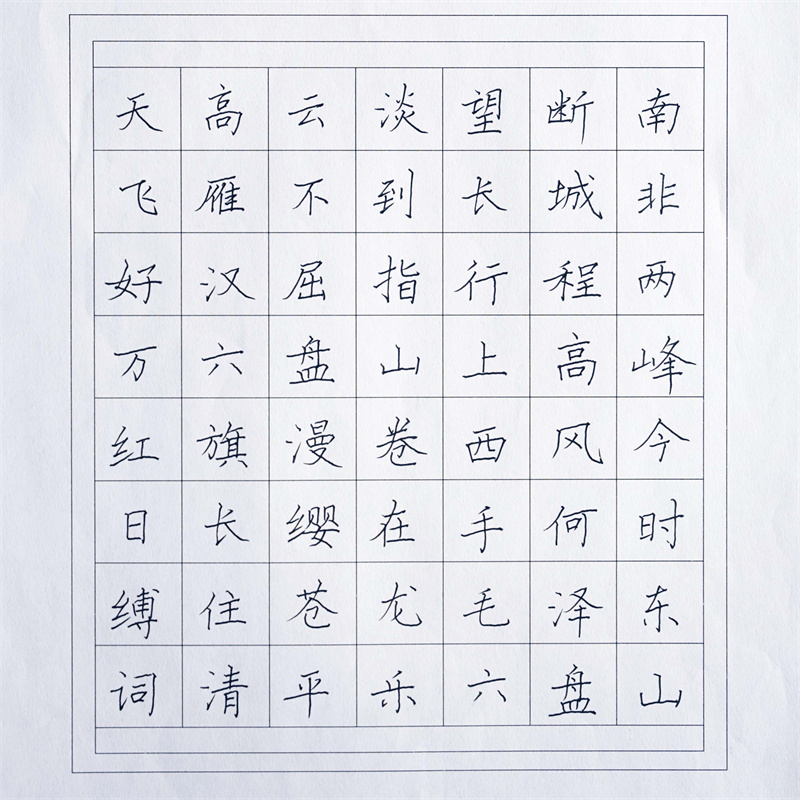 天高云淡望断南
飞雁不到长城非
好汉屈指行程两
万六盘山上高峰
红旗漫卷西风今
日长缨在手何时
缚住苍龙毛泽东
词清平乐六盘山